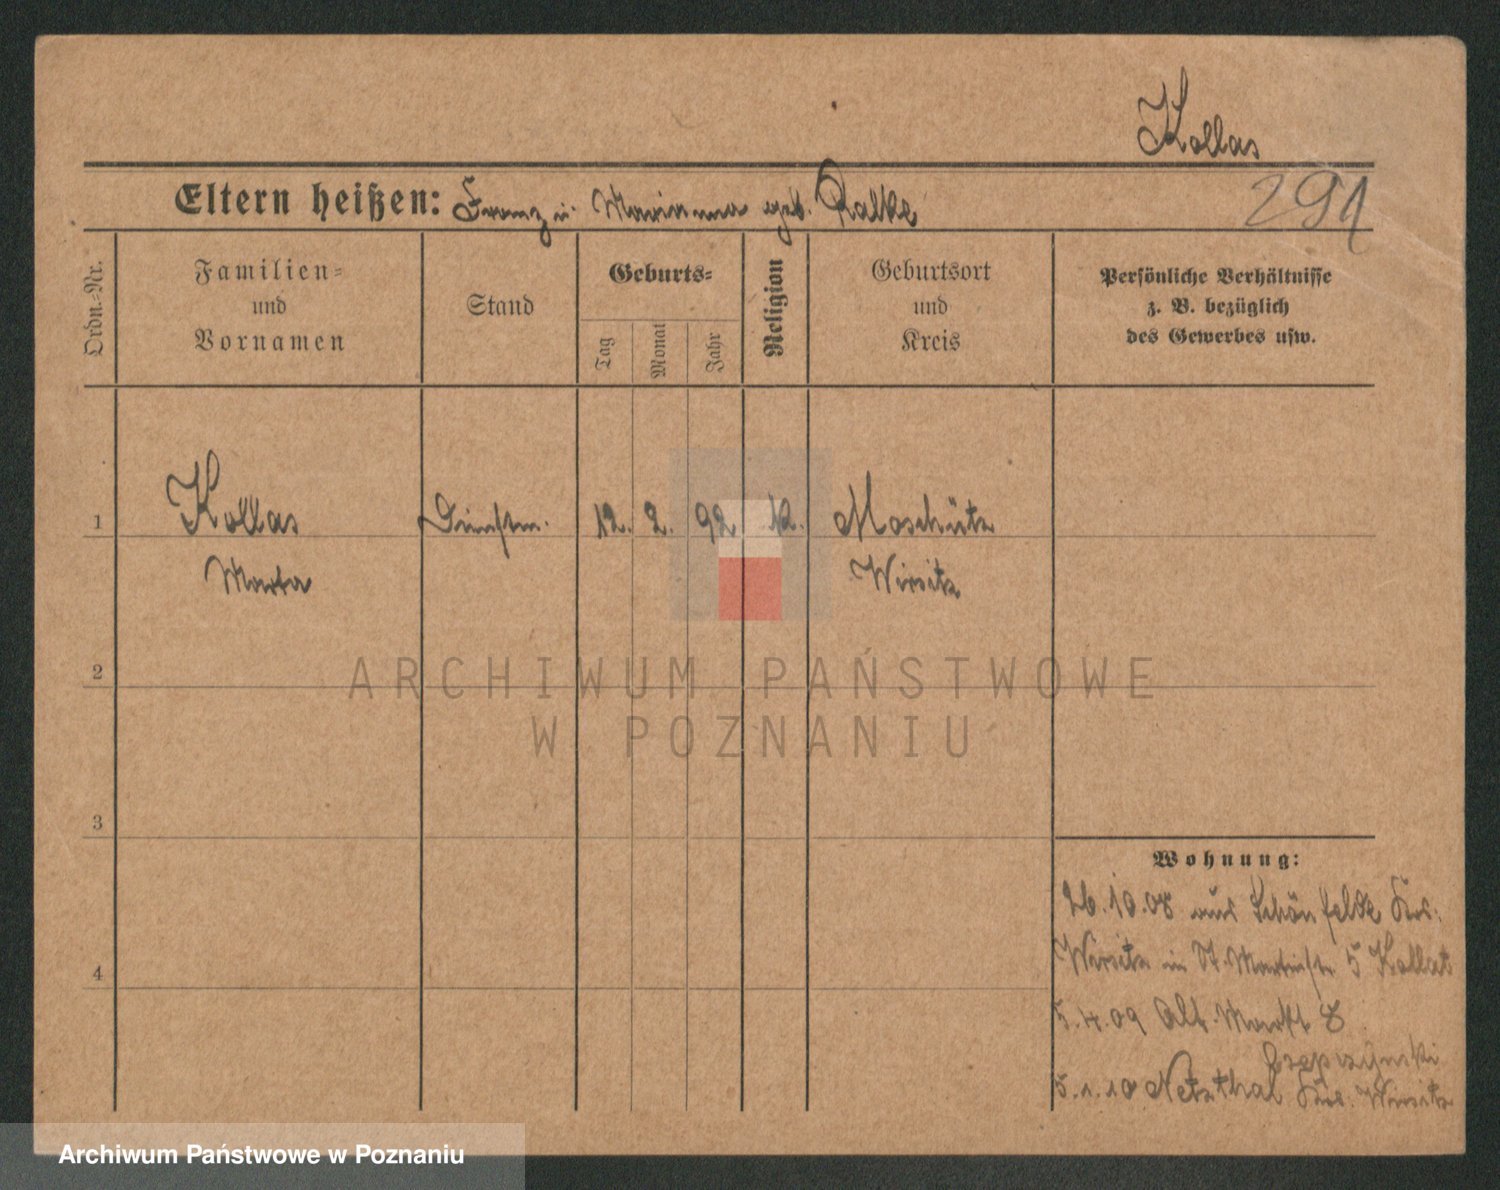 Kollas
291
Eltern heißen: Franz u. Marianna geb. Ralke
Ordn.-Nr.
Familien-
und
Vornamen
Stand
Geburts-
Tag
Monat
Jahr
Religion
Geburtsort
und
Kreis
Persönliche Verhältnisse
z. B. bezüglich
des Gewerbes usw.
1
Kollas
Marta
12. 2. 92
Moschütz
Wirsitz
2
ARCHIWUM PAŃSTWOWE
W POZNANIU
3
4
Wohnung:
26.10.08 aus Schönfelde Krs.
Wirsitz in St. Martinstr. 5 Kollat
5.4.09 Alt. Markt 8
5.1.10 Netzthal Krs. Wirsitz
Archiwum Państwowe w Poznaniu